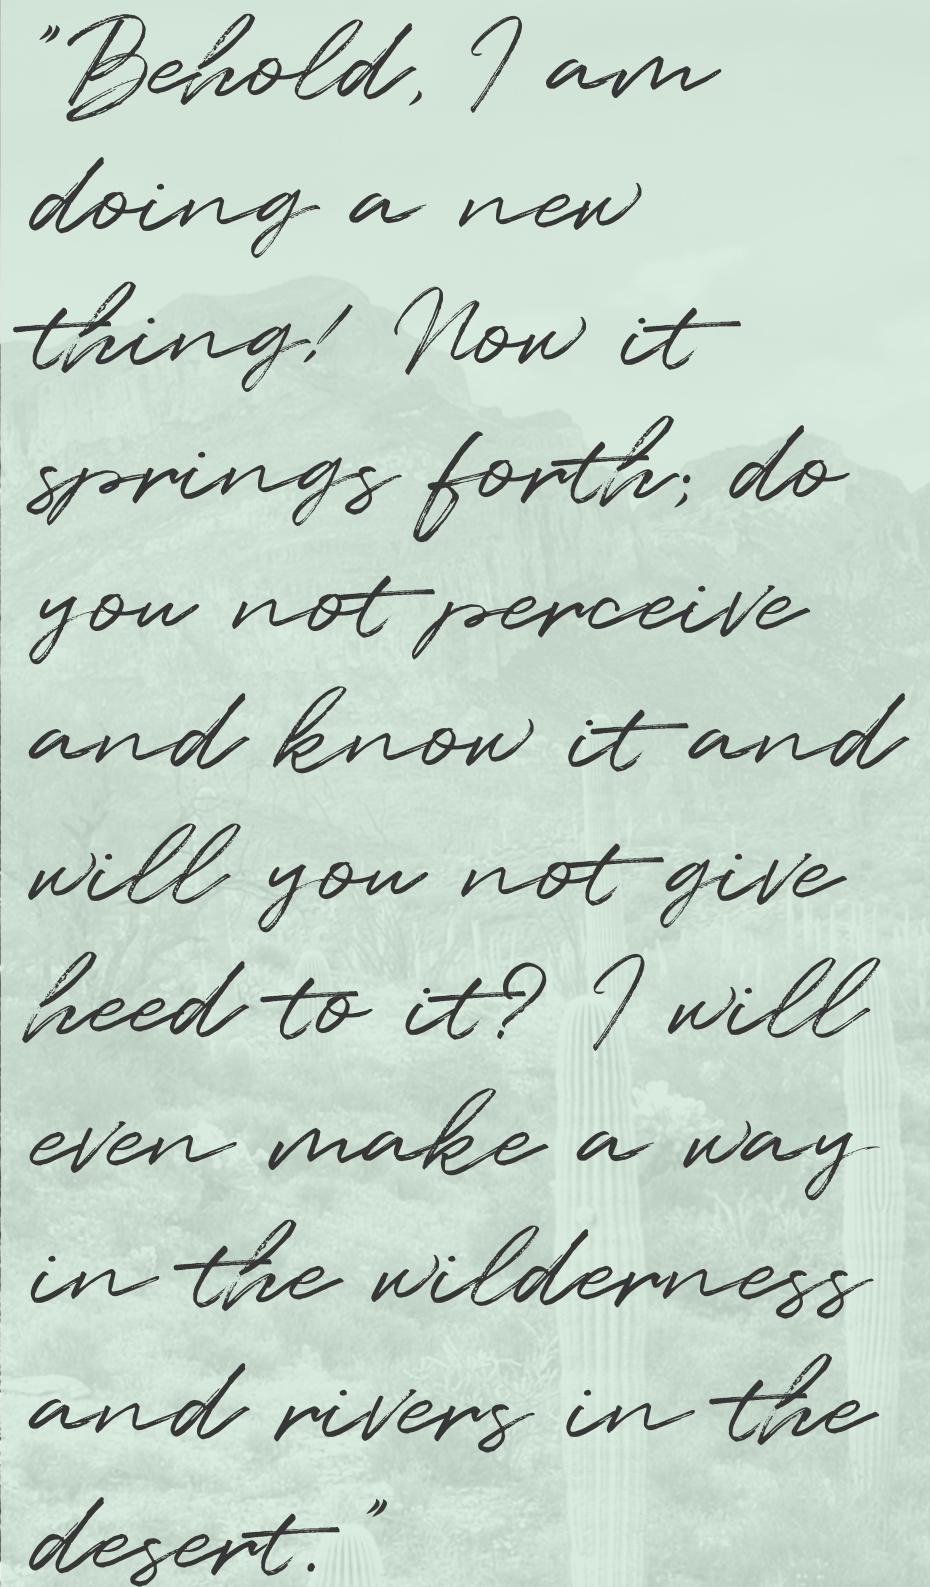 "Behold, I am
doing a new
thing! Now it
springs forth; do
you not perceive
and know it and
will you not give
heed to it? I will
even make a way
in the wilderness
and rivers in the
desert."